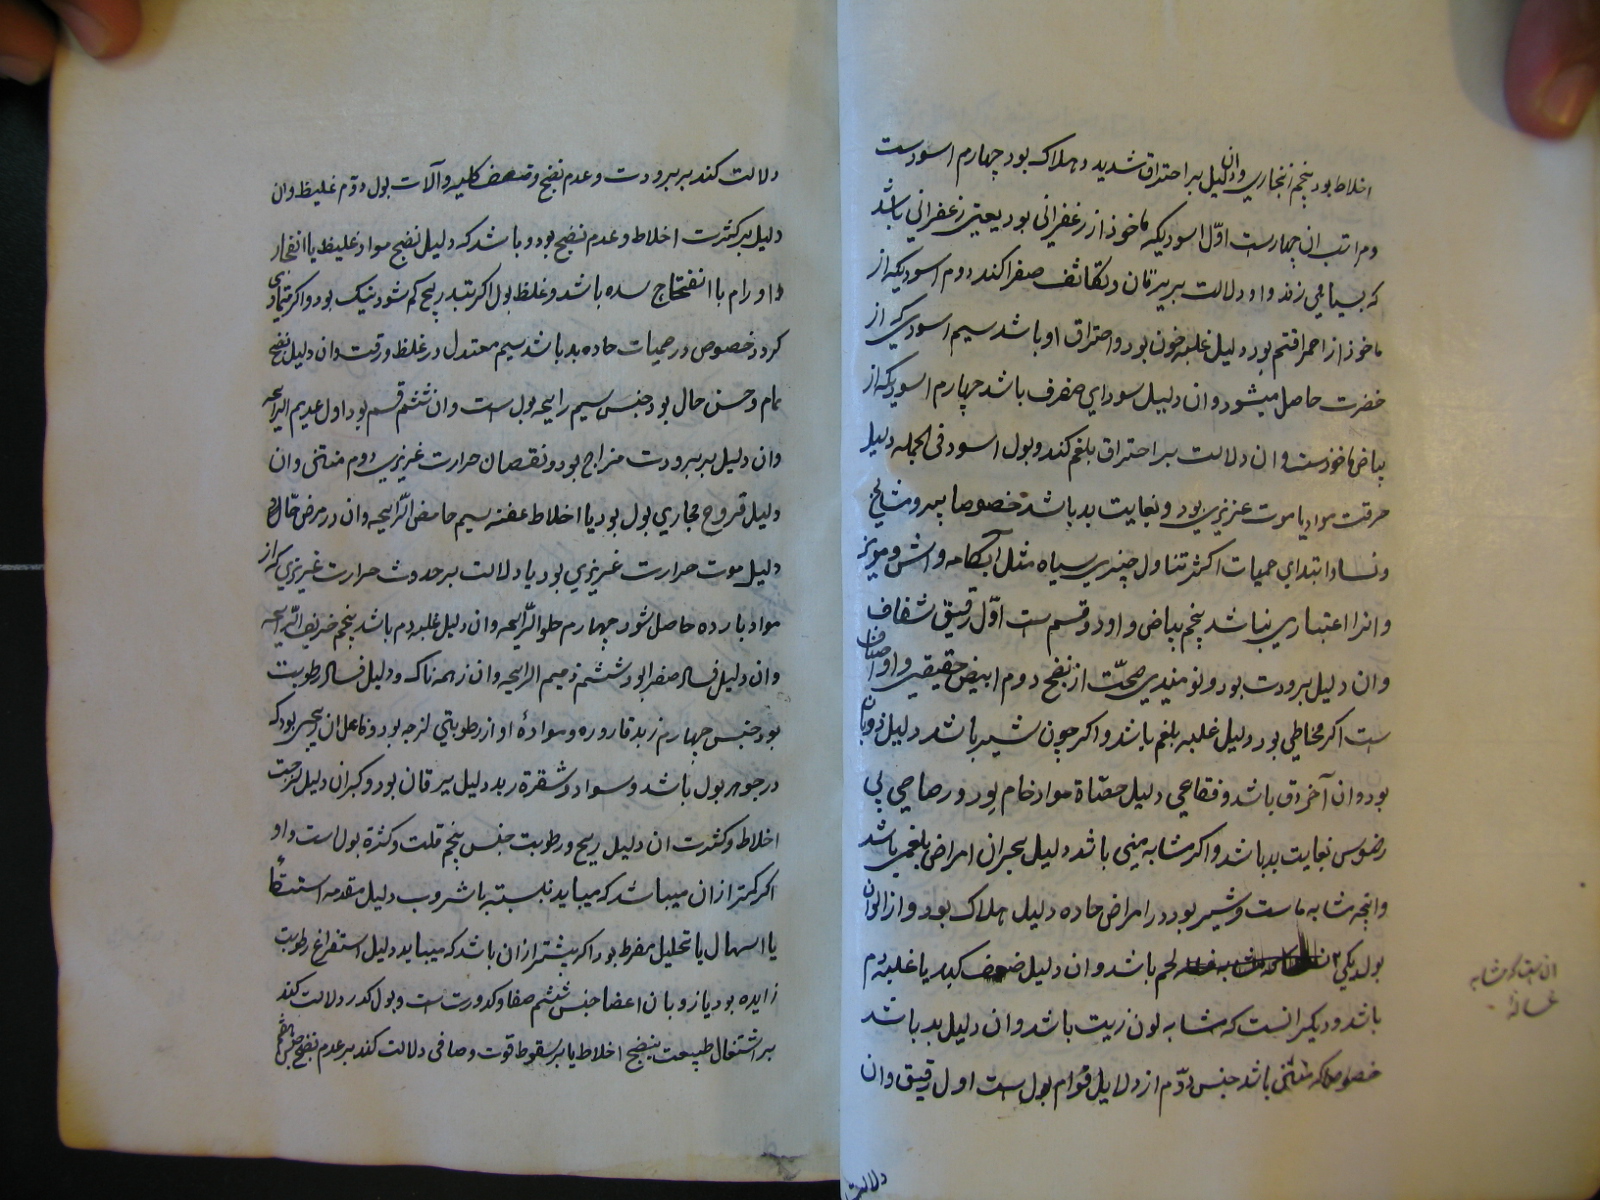 اخلاط بود پنجم زنجاری و ان دلیل بر احتراق شدید و هلاک بود چهارم اسودست
و مراتب ان چهارست اوّل اسودیکه ماخوذ از زعفرانی بود یعنی زعفرانی باشد
که بسیاهی زند و او دلالت بر یرقان و تکاثف صفرا کند دوم اسودیکه از
ماخوذ از احمر اقتم بود دلیل غلبه خون بود و احتراق او باشد سیم اسودیکه از
خضرت حاصل میشود و ان دلیل سودای صرف باشد چهارم اسودیکه از
بیاض ماخوذست و ان دلالت بر احتراق بلغم کند و بول اسود فی الجمله دلیل
حرقت مواد یا موت غریزی بود و بغایت بد باشد خصوصا پیر و مشایخ
و نسا و ابتدای حمیات اکثر تناول چیزی سیاه مثل آبکامه و اش و مویز
و انرا اعتباری نباشد پنجم بیاض و او دو قسم ست اوّل رقیق شفاف
و ان دلیل برودت بود و نومیدی صحّت از نضج دوم ابیض حقیقی و او اصناف
ست اکر مخاطی بود دلیل غلبه بلغم باشد و اکر چون شیر باشد دلیل ذوبان
بود و ان آخر دق باشد و فقاعی دلیل حصاة مواد خام بود و رصاصی بی
رسوب بغایت بد باشد و اکر مشابه منی باشد دلیل بحران امراض بلغمی باشد
و انچه مشابه ماست و شیر بود در امراض حاده دلیل هلاک بود و از الوان
بول دیکر یکی لحم باشد و ان دلیل ضعف کبد یا غلبه دم
باشد و دیکر انست که مشابه لون زیت باشد و ان دلیل بد باشد
خصوصا که منتنی باشد جنس دوّم از دلایل قوام بول ست اول رقیق و ان
ان بود که مشابه
غساله
دلالت
دلالت کند بر برودت و عدم نضج و ضعف کلیه و آلات بول دوّم غلیظ و ان
دلیل بر کثرت اخلاط و عدم نضج بود و باشد که دلیل نضج مواد غلیظ یا انفجار
اورام یا انفتاح سده باشد و غلظ بول اکر بتدریج کم شود نیک بود و اکر متمادی
کردد خصوص در حمیات حاده بد باشد سیم معتدل در غلظ و رقت و ان دلیل نضج
تمام و حسن حال بود جنس سیم رایحه بول ست و ان ششم قسم بود اول عدیم الرایحه
و ان دلیل بر برودت مزاج بود و نقصان حرارت غریزی دوم منتنی و ان
دلیل قروح مجاری بول بود یا اخلاط عفنه سیم حامض الرّایحه و ان در مرض حالی
دلیل موت حرارت غریزی بود یا دلالت بر حدوث حرارت غریزی که از
مواد بارده حاصل شود چهارم حلو الرّایحه و ان دلیل غلبه دم باشد پنجم حریف الرّایحه
و ان دلیل فساد صفرا بود ششم ذمیم الرایحه و ان زهمه ناک و دلیل فساد رطوبت
بود جنس چهارم زبد قاروره و مواده او از رطوبتی لزجه بود و فاعل ان ریحی بود که
در جوهر بول باشد و سواد و شقرة زبد دلیل یرقان بود و کبر ان دلیل لزجت
اخلاط و کثرت ان دلیل ریح و رطوبت جنس پنجم قلت و کثرة بول است و او
اکر کمتر از ان میباشد که میباید نسبت با مشروب دلیل مقدمه استسقا
یا اسهال یا تحلیل مفرط بود اکر بیشتر از ان باشد که میباید دلیل استفراغ رطوبت
زایده بود یا ذوبان اعضا جنس ششم صفا و کدورت ست و بول کدر دلالت کند
بر اشتغال طبیعت بنضج اخلاط یا بر سقوط قوت و صافی دلالت کند بر عدم نضج جنس هفتم